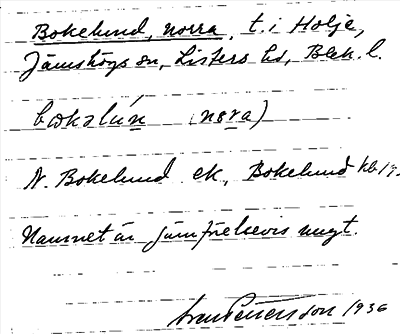 Bokelund, norra, t. i Holje,
Jämshögs sn, Listers hd, Blek. l.
bokəlún (nora)
N. Bokelund ek., Bokelund kb 19.
Namnet är jämförelsevis nugt.
Sven Petersson 1936